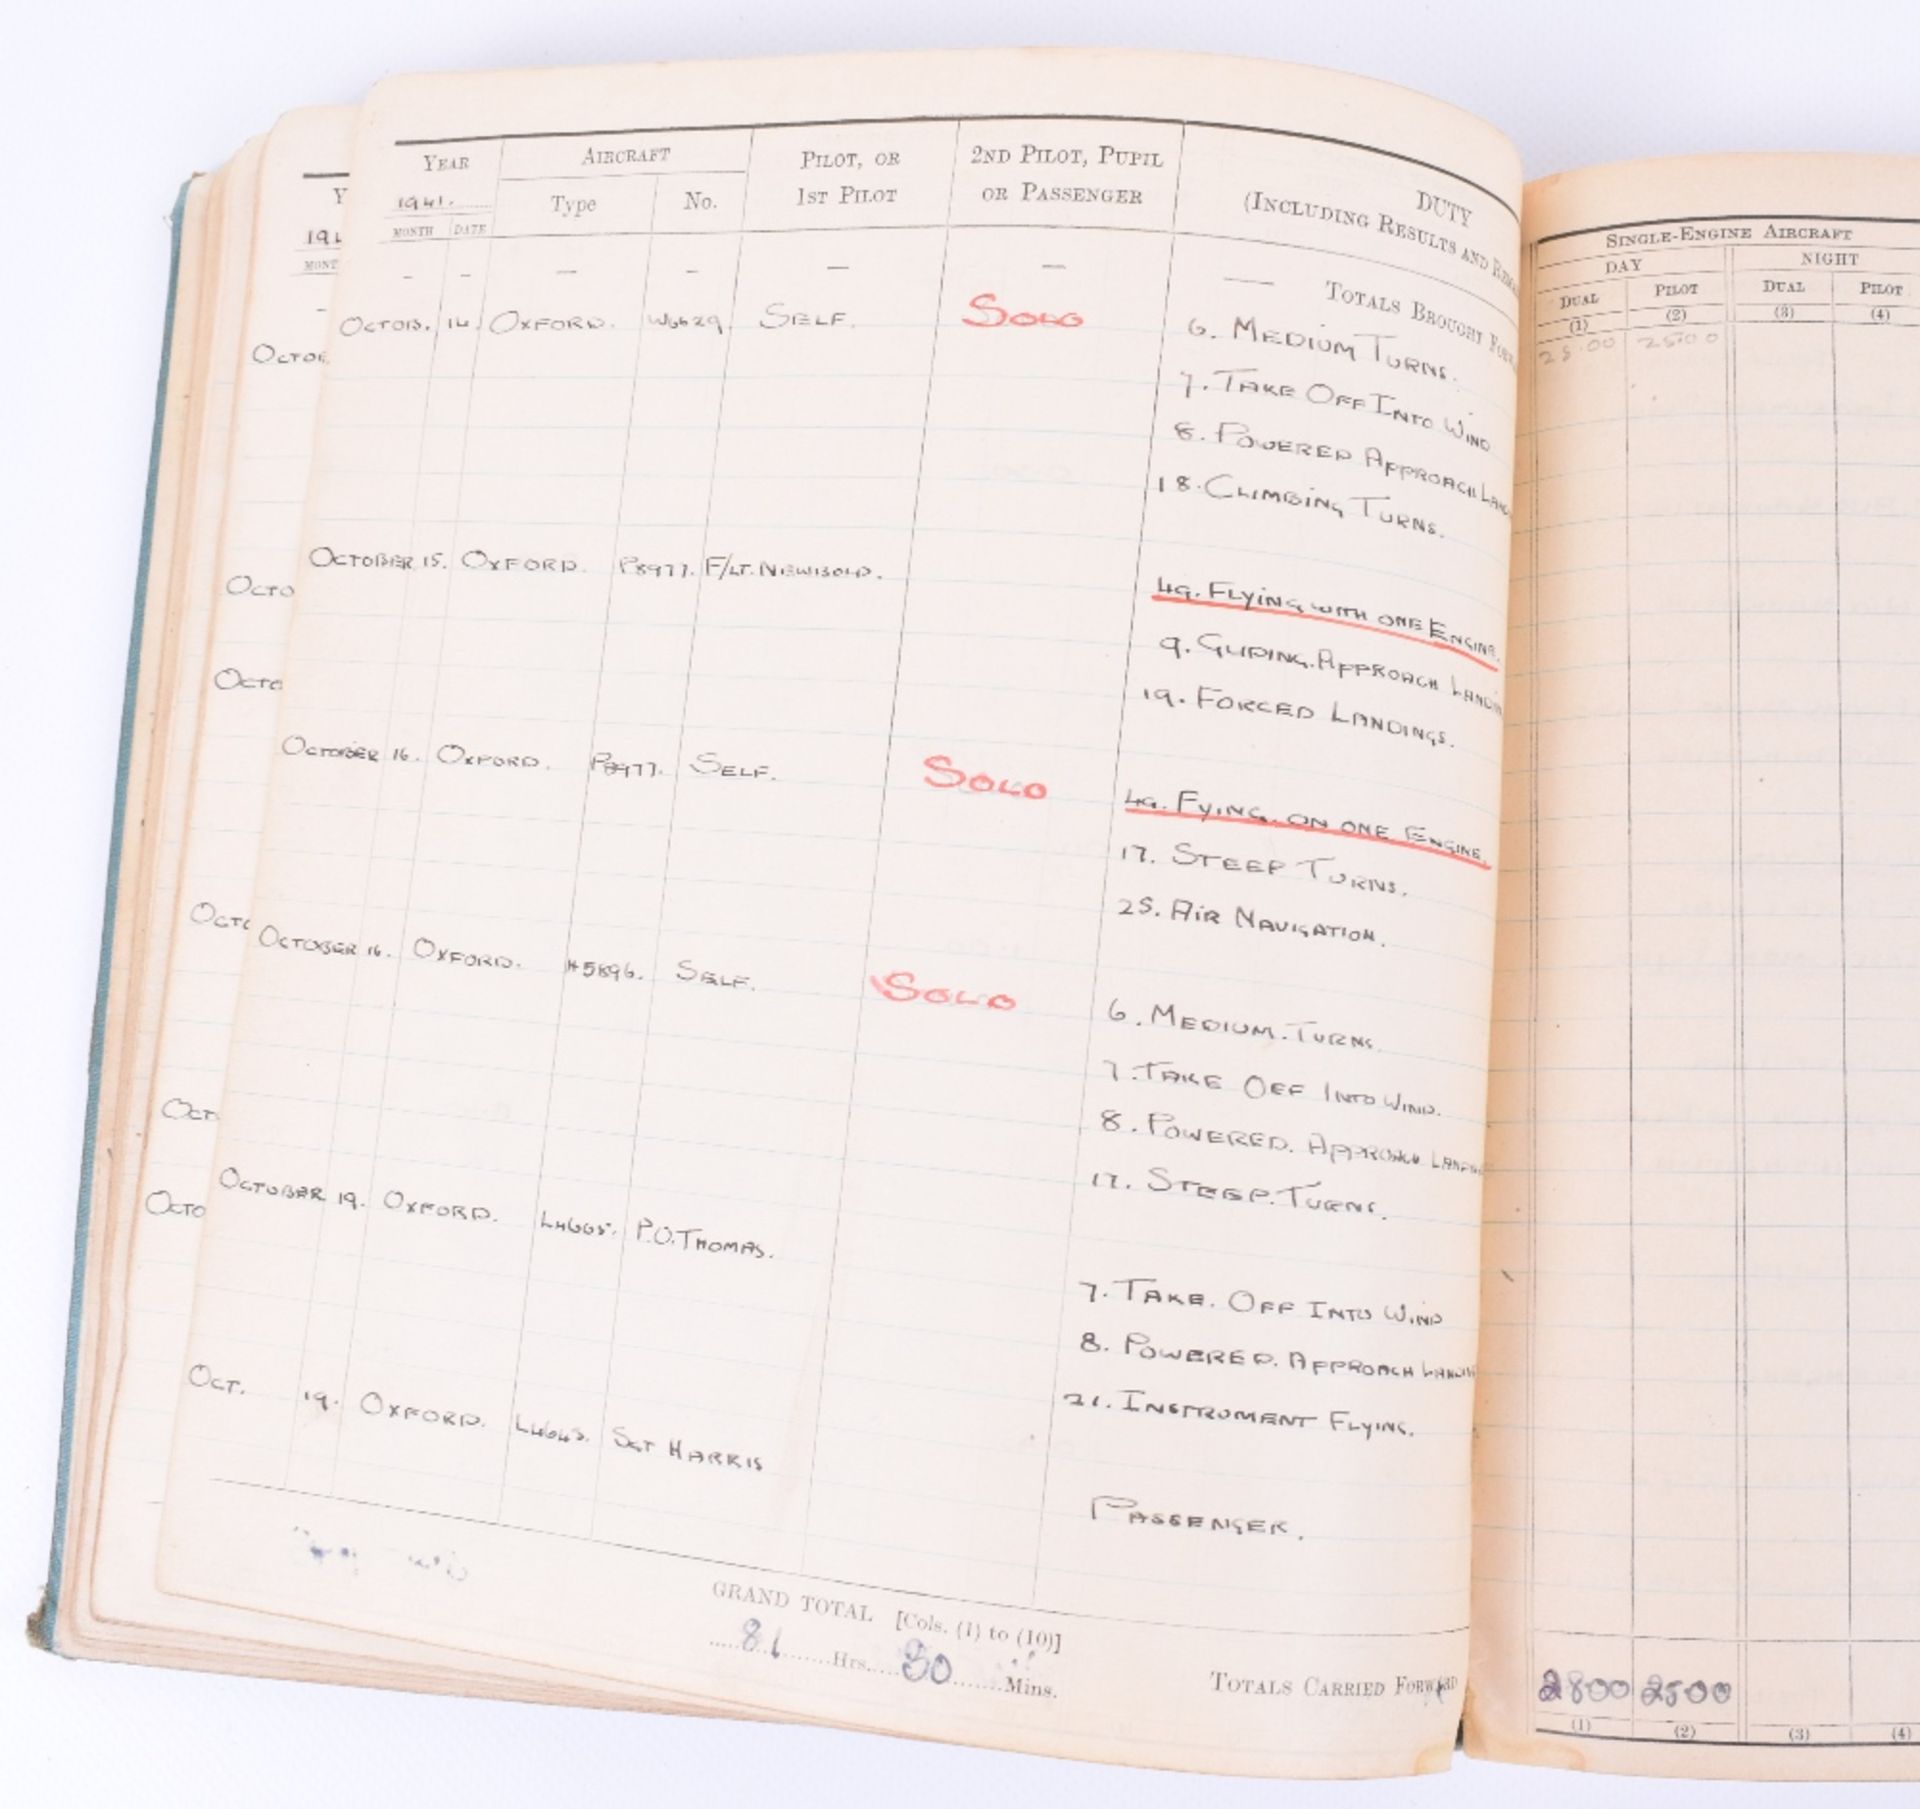 YEAR AIRCRAFT PILOT, OR 2ND PILOT, PUPIL DUTY
1941. Type No. 1ST PILOT OR PASSENGER (INCLUDING RESULTS AND
MONTH DATE
— — — — — — — TOTALS BROUGHT
OCTOB. 14. OXFORD. W6629. SELF. SOLO 6. MEDIUM TURNS.
7. TAKE OFF INTO WIND
8. POWERED APPROACH
18. CLIMBING TURNS.
OCTOBER 15. OXFORD. P8977. F/LT. NEWBOLD. 4G. FLYING WITH ONE ENGINE.
9. GLIDING. APPROACH
19. FORCED LANDINGS.
OCTOBER 16. OXFORD. P8977. SELF. SOLO 4G. FYING. ON ONE ENGINE.
17. STEEP TURNS.
25. AIR NAVIGATION.
OCTOBER 16. OXFORD. SELF. SOLO 6. MEDIUM. TURNS.
7. TAKE OFF INTO WIND.
8. POWERED. APPROACH
17. STEEP. TURNS.
OCTOBER 19. OXFORD. P.O. THOMAS. 7. TAKE. OFF INTO WIND
8. POWERED. APPROACH
21. INSTRUMENT FLYING.
OCT. 19. OXFORD. SGT HARRIS PASSENGER.
GRAND TOTAL [Cols. (1) to (10)]
81 Hrs. 30 Mins.
TOTALS CARRIED FORWARD
SINGLE-ENGINE AIRCRAFT
DAY NIGHT
DUAL PILOT DUAL PILOT
(1) (2) (3) (4)
2500
2800 2500
(1) (2) (3) (4)